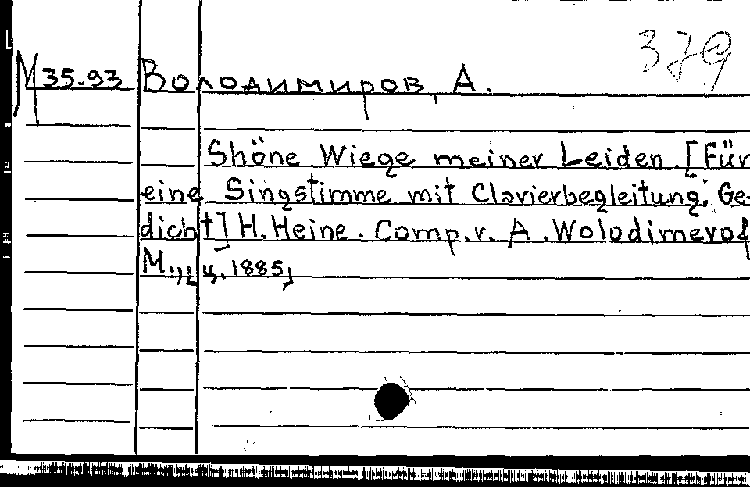 379
М 35-93 Володимиров, А.
Shöne Wiege meiner Leiden. [Für
eine Singstimme mit Clavierbegleitung. Ge-
dicht] H. Heine. Comp. v. A. Wolodimerof
М., ц. 1885,